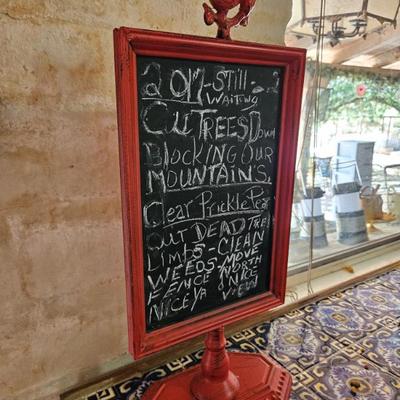 2017-Still
Waiting
CUTREESDown
BLOCKING OUR
MOUNTAIN'S
Clear Prickle Pear
OUT DEAD TREE
LIMBS-CLEAN
WEEDS-MOVE
FENCE NORTH
NICE
NICE YA VIEW